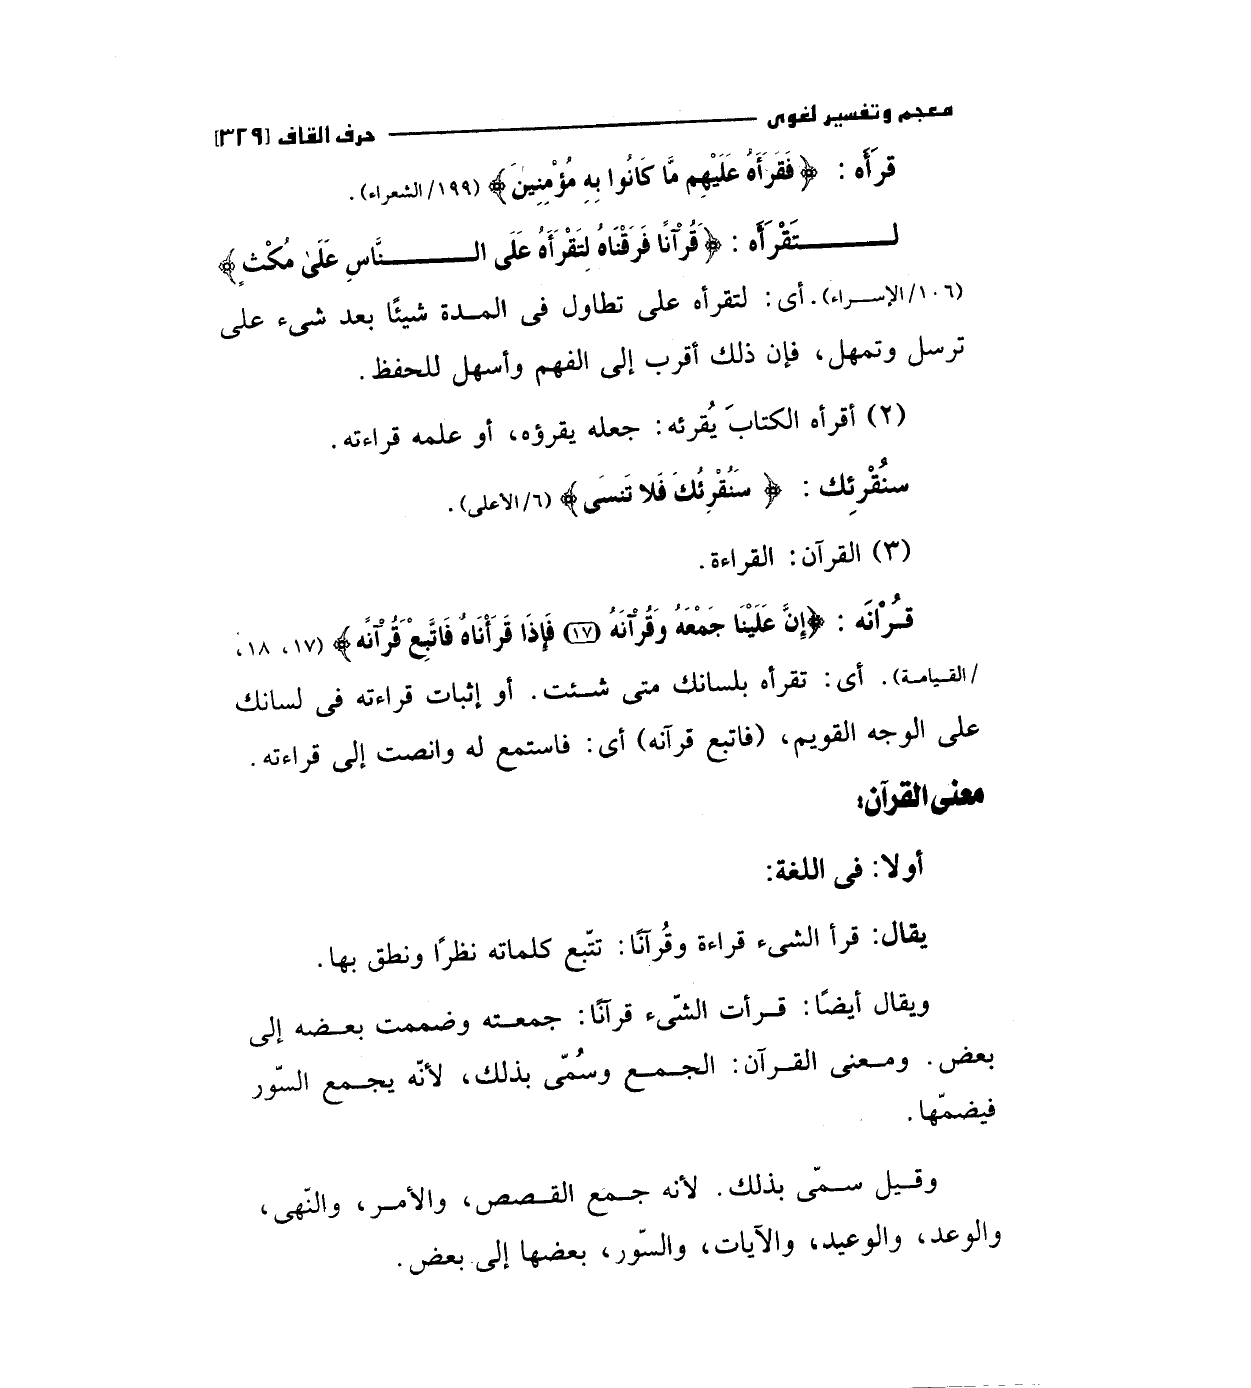 معجم وتفسير لغوى ـــــــــــــــــــــ حرف القاف [٣٢٩]
قرأَه : ﴿فَقَرَأَهُ عَلَيْهِم مَّا كَانُوا بِهِ مُؤْمِنِينَ﴾ (١٩٩/الشعراء).
لـــــــــتَقْرَأَه : ﴿قُرْآنًا فَرَقْنَاهُ لِتَقْرَأَهُ عَلَى الـــــــــنَّاسِ عَلَىٰ مُكْثٍ﴾
(١٠٦/الإسـراء). أى: لتقرأه على تطاول فى المـدة شيئًا بعد شىء على
ترسل وتمهل، فإن ذلك أقرب إلى الفهم وأسهل للحفظ.
(٢) أقرأه الكتابَ يُقرئه: جعله يقرؤه، أو علمه قراءته.
سنُقْرِئك : ﴿سَنُقْرِئُكَ فَلا تَنسَى﴾ (٦/الأعلى).
(٣) القرآن: القراءة.
قـُرْانَه : ﴿إِنَّ عَلَيْنَا جَمْعَهُ وَقُرْآنَهُ (١٧) فَإِذَا قَرَأْنَاهُ فَاتَّبِعْ قُرْآنَهُ﴾ (١٧، ١٨،
/القـيامـة). أى: تقرأه بلسانك متى شـئت. أو إثبات قراءته فى لسانك
على الوجه القويم، (فاتبع قرآنه) أى: فاستمع له وانصت إلى قراءته.
معنى القرآن:
أولا: فى اللغة:
يقال: قرأ الشىء قراءة وقُرآنًا: تتّبع كلماته نظرًا ونطق بها.
ويقال أيضًا: قـرأت الشّىء قرآنًا: جمعـته وضممت بعـضه إلى
بعض. ومـعنى القـرآن: الجـمـع وسُمّى بذلك، لأنّه يجـمع السّور
فيضمّها.
وقـيل سـمّى بذلك. لأنه جـمع القـصص، والأمـر، والنّهى،
والوعد، والوعيد، والآيات، والسّور، بعضها إلى بعض.